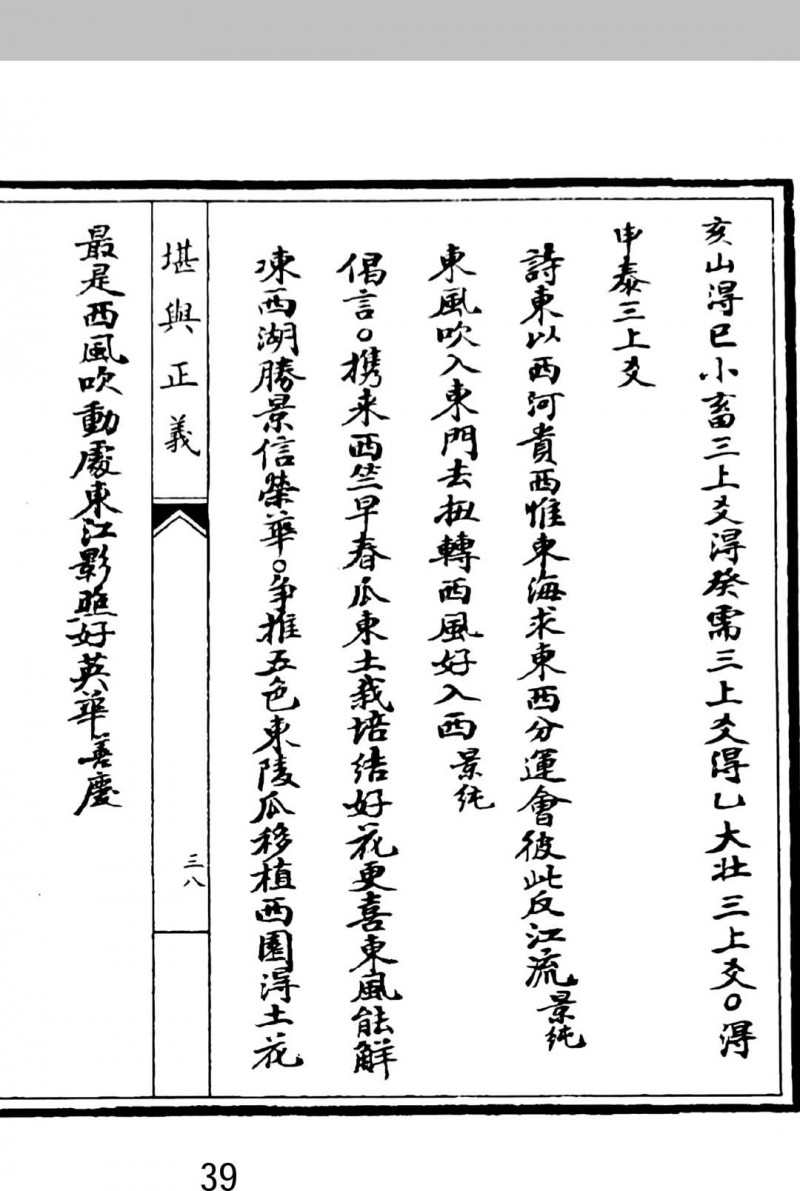 亥山得巳小畜三上爻得癸需三上爻得乙大壯三上爻。得
申泰三上爻
詩東以西河貴西惟東海求東西分運會彼此反江流景純
東風吹入東門去扭轉西風好入西景純
偈言。携来西竺早春瓜東土栽培結好花更喜東風能解
凍西湖勝景信榮華。争推五色東陵瓜移植西園得土花
堪輿正義
三八
最是西風吹動處東江影照好英華善慶
39